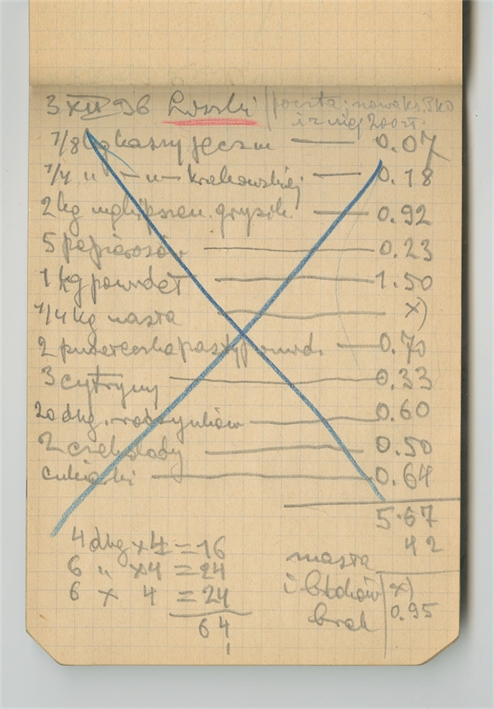 3 XII 96 Loski | poczta: nowaks. Pko
i z niej 200 zł.
1/8 kg kaszy jęczm 0.07
1/4 " —"— krakowskiej 0.18
2 kg grysik 0.92
5 papierosów 0.23
1 kg powideł 1.50
1/4 kg masła x)
2 pasty 0.70
3 cytryny 0.33
20 dkg. rodzynków 0.60
2 czekolady 0.50
cukierki 0.64
5.67
42
4 dkg x 4 = 16
6 " x 4 = 24
6 x 4 = 24
64
masła
i x)
brak 0.95